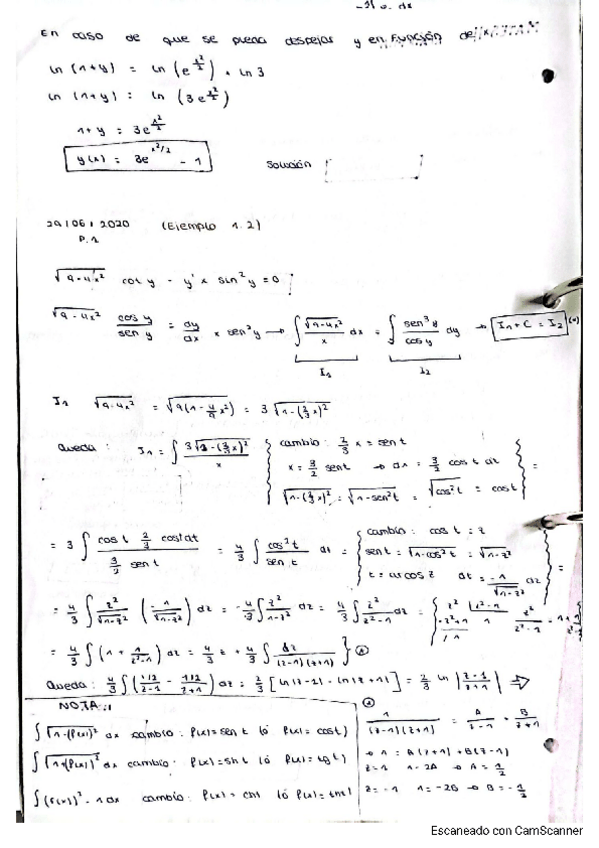 En caso de que se pueda despejar y en función de x
ln (1+y) = ln (e^{x²/2}) + ln 3
ln (1+y) = ln (3e^{x²/2})
1+y = 3e^{x²/2}
y(x) = 3e^{x²/2} - 1
Solución
29/06/2020 (Ejemplo 1.2)
P.1
√9-4x² cot y - y' x sin² y = 0
√9-4x² cos y / sen y = dy/dx x sen² y → ∫ √9-4x² / x dx = ∫ sen³ y / cos y dy → I1 + C = I2 (*)
I1 I2
I1 √9-4x² = √9(1-4/9 x²) = 3 √1-(2/3 x)²
Queda: I1 = ∫ 3√1-(2/3 x)² / x { cambio: 2/3 x = sen t
x = 3/2 sent → dx = 3/2 cos t dt } =
√1-(2/3 x)² = √1-sen² t = √cos² t = cos t
= 3 ∫ cos t 2/3 cos t dt / 3/2 sen t = 4/3 ∫ cos² t / sen t dt = { cambio: cos t = z
sen t = √1-cos² t = √1-z² } =
t = arcos z dt = -1/√1-z² dz
= 4/3 ∫ z²/√1-z² (-1/√1-z²) dz = -4/3 ∫ z²/1-z² dz = 4/3 ∫ z²/z²-1 dz =
= 4/3 ∫ (1 + 1/z²-1) dz = 4/3 z + 4/3 ∫ dz/(z-1)(z+1) }
Queda: 4/3 ∫ (1/2/z-1 - 1/2/z+1) dz = 2/3 [ln(z-1) - ln(z+1)] = 2/3 ln |z-1/z+1| ⇒
NOTA:
∫ √1-(f(x))² dx cambio: f(x) = sen t (ó f(x) = cos t)
∫ √1+(f(x))² dx cambio: f(x) = sh t (ó f(x) = tg t)
∫ (f(x))² - 1 dx cambio: f(x) = ch t
1/(z-1)(z+1) = A/z-1 + B/z+1
→ 1 = A(z+1) + B(z-1)
z=1 1=2A → A = 1/2
z=-1 1=-2B → B = -1/2
Escaneado con CamScanner